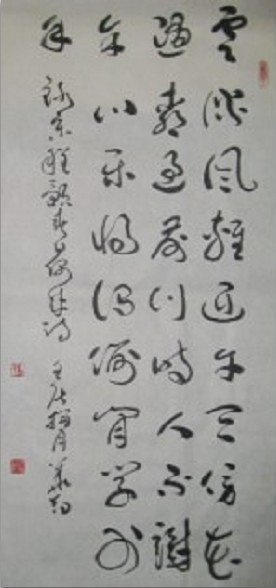 雲淡風輕近午天傍花
隨柳過前川時人不識
余心樂將謂偷閒學少
年
錄宋程顥春日偶成詩